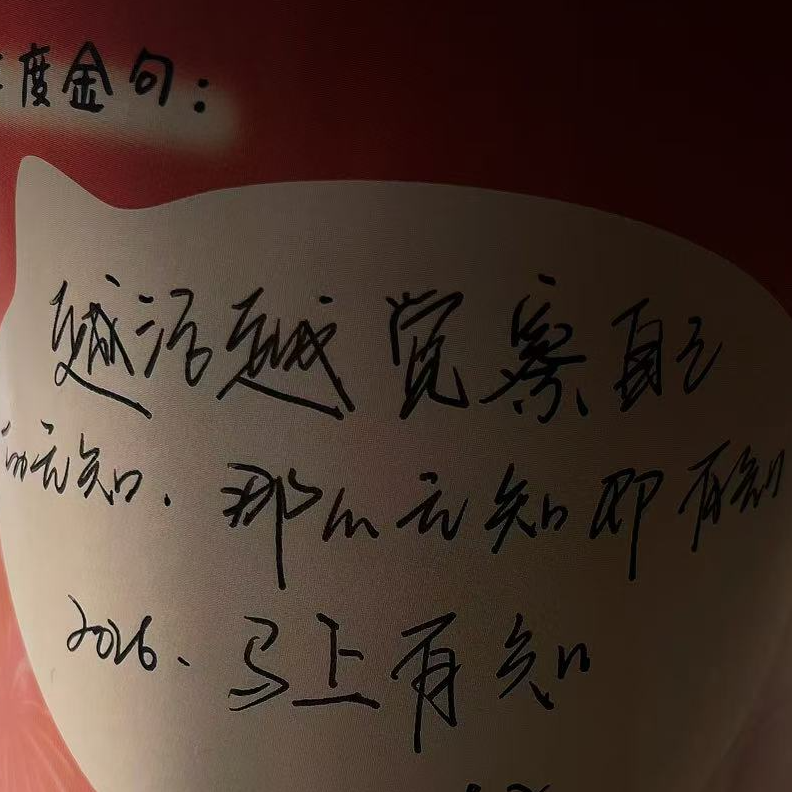 度金句:
越活越觉察自己
的无知.那么无知即有知
2026.马上有知